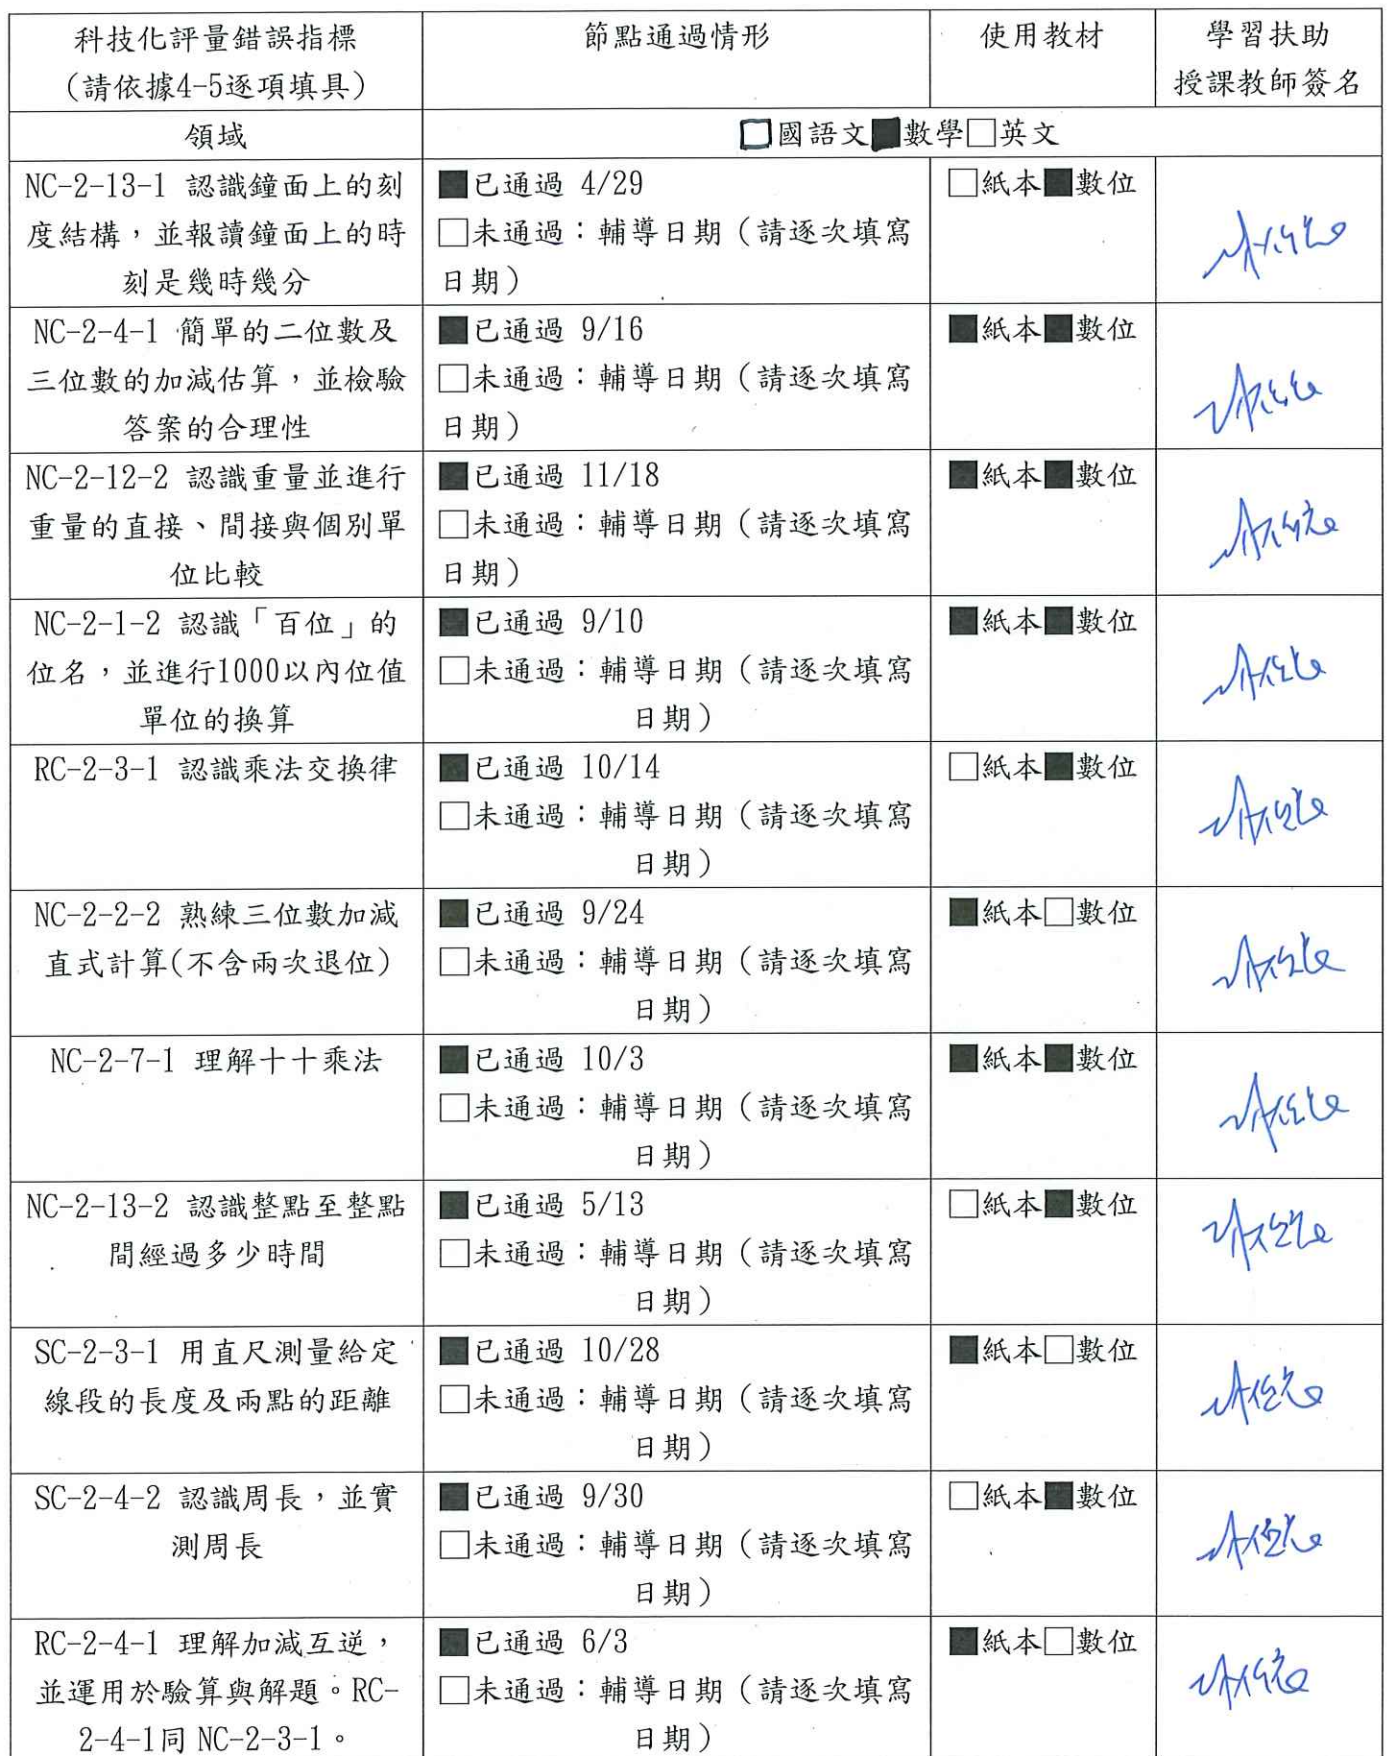 科技化評量錯誤指標
(請依據4-5逐項填具)
節點通過情形
使用教材
學習扶助
授課教師簽名
領域
□國語文■數學□英文
NC-2-13-1 認識鐘面上的刻
度結構，並報讀鐘面上的時
刻是幾時幾分
■已通過 4/29
□未通過：輔導日期（請逐次填寫
日期）
□紙本■數位
NC-2-4-1 簡單的二位數及
三位數的加減估算，並檢驗
答案的合理性
■已通過 9/16
□未通過：輔導日期（請逐次填寫
日期）
■紙本■數位
NC-2-12-2 認識重量並進行
重量的直接、間接與個別單
位比較
■已通過 11/18
□未通過：輔導日期（請逐次填寫
日期）
■紙本■數位
NC-2-1-2 認識「百位」的
位名，並進行1000以內位值
單位的換算
■已通過 9/10
□未通過：輔導日期（請逐次填寫
日期）
■紙本■數位
RC-2-3-1 認識乘法交換律
■已通過 10/14
□未通過：輔導日期（請逐次填寫
日期）
□紙本■數位
NC-2-2-2 熟練三位數加減
直式計算(不含兩次退位)
■已通過 9/24
□未通過：輔導日期（請逐次填寫
日期）
■紙本□數位
NC-2-7-1 理解十十乘法
■已通過 10/3
□未通過：輔導日期（請逐次填寫
日期）
■紙本■數位
NC-2-13-2 認識整點至整點
間經過多少時間
■已通過 5/13
□未通過：輔導日期（請逐次填寫
日期）
□紙本■數位
SC-2-3-1 用直尺測量給定
線段的長度及兩點的距離
■已通過 10/28
□未通過：輔導日期（請逐次填寫
日期）
■紙本□數位
SC-2-4-2 認識周長，並實
測周長
■已通過 9/30
□未通過：輔導日期（請逐次填寫
日期）
□紙本■數位
RC-2-4-1 理解加減互逆，
並運用於驗算與解題。RC-
2-4-1同 NC-2-3-1。
■已通過 6/3
□未通過：輔導日期（請逐次填寫
日期）
■紙本□數位